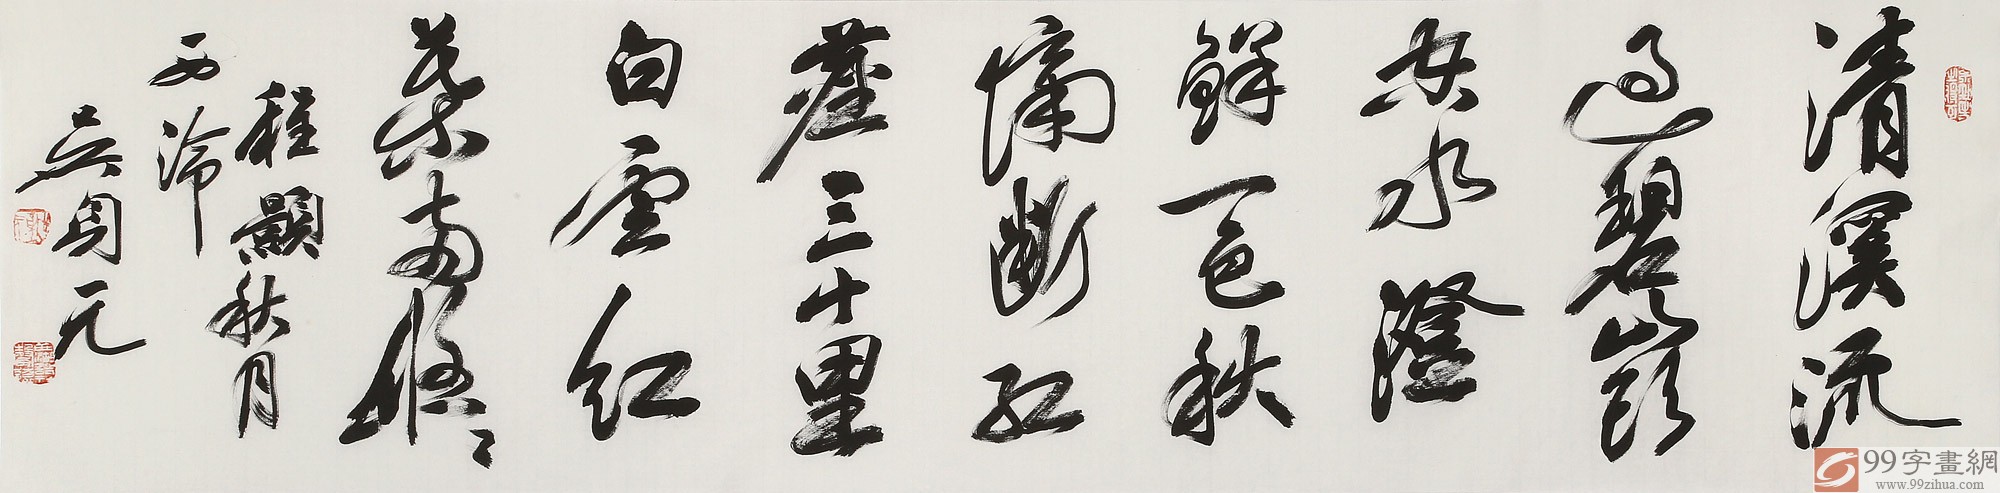 清溪流
過碧山頭
空水澄
鮮一色秋
隔断红
塵三十里
白雲红
葉兩悠々
程顥秋月
西泠
吴元
99字畫網
www.99zihua.com